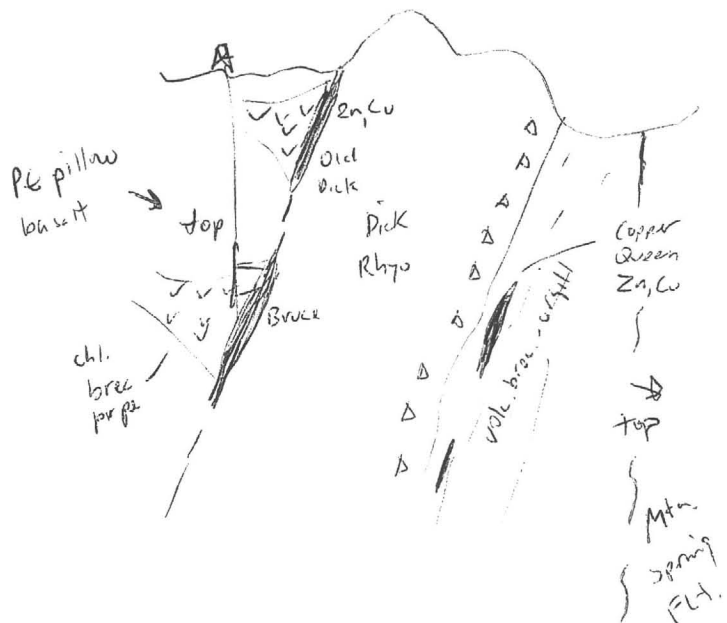 Zn, Cu
Old
Dick
P€ pillow
basalt
top
Dick
Rhyo
Bruce
chl.
brec
pipe
volc. brec. - upright
Copper
Queen
Zn, Cu
top
Mtn.
Spring
Flt.